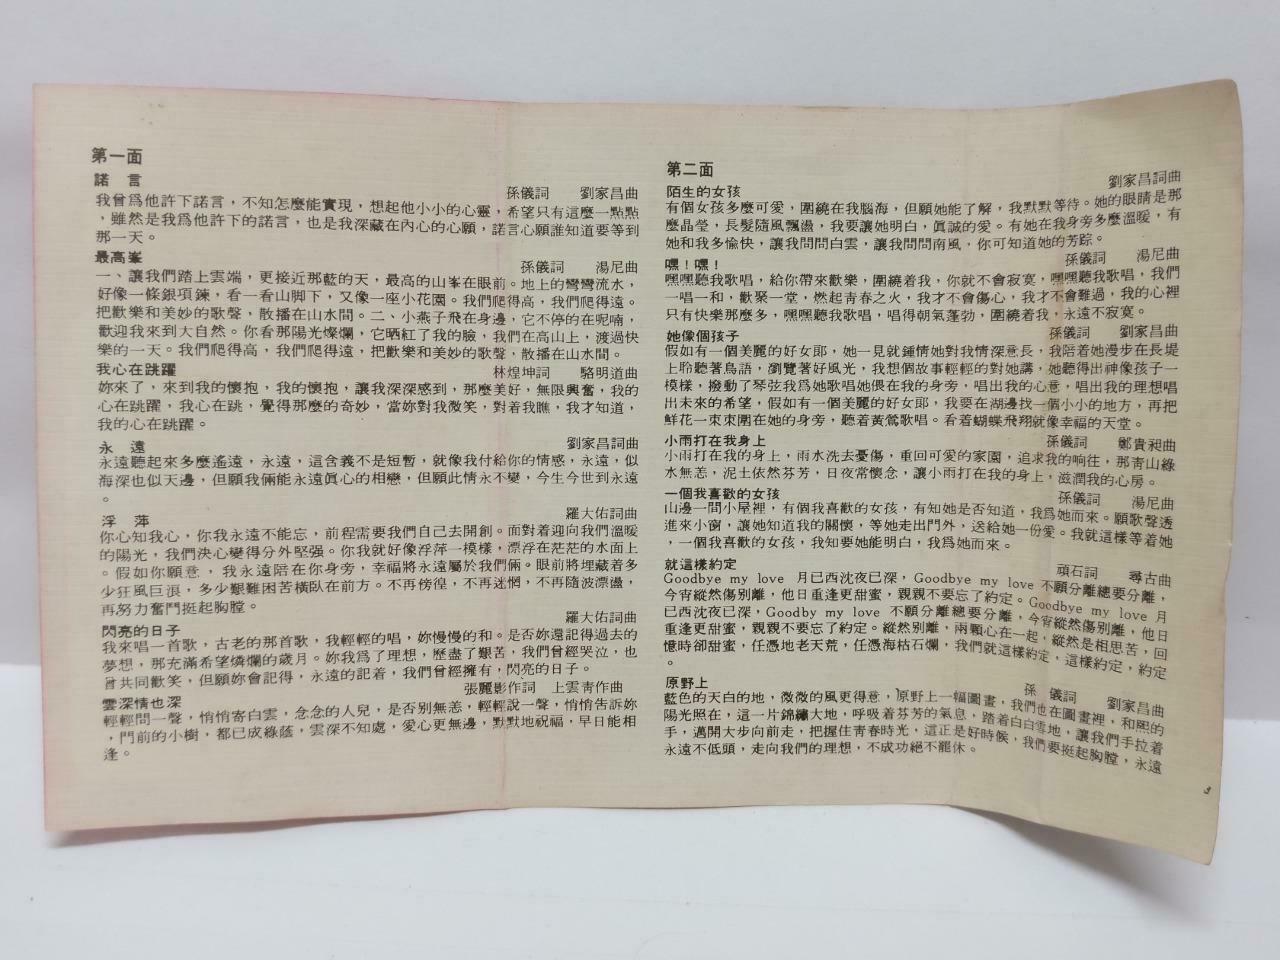 第一面
諾　言
孫儀詞　劉家昌曲
我曾爲他許下諾言，不知怎麼能實現，想起他小小的心靈，希望只有這麼一點點
，雖然是我爲他許下的諾言，也是我深藏在內心的心願，諾言心願誰知道要等到
那一天。
最高峯
孫儀詞　湯尼曲
一、讓我們踏上雲端，更接近那藍的天，最高的山峯在眼前。地上的彎彎流水，
好像一條銀項鍊，看一看山脚下，又像一座小花園。我們爬得高，我們爬得遠。
把歡樂和美妙的歌聲，散播在山水間。二、小燕子飛在身邊，它不停的在呢喃，
歡迎我來到大自然。你看那陽光燦爛，它晒紅了我的臉，我們在高山上，渡過快
樂的一天。我們爬得高，我們爬得遠，把歡樂和美妙的歌聲，散播在山水間。
我心在跳躍
林煌坤詞　駱明道曲
妳來了，來到我的懷抱，我的懷抱，讓我深深感到，那麼美好，無限興奮，我的
心在跳躍，我心在跳，覺得那麼的奇妙，當妳對我微笑，對着我瞧，我才知道，
我的心在跳躍。
永　遠
劉家昌詞曲
永遠聽起來多麼遙遠，永遠，這含義不是短暫，就像我付給你的情感，永遠，似
海深也似天邊，但願我倆能永遠眞心的相戀，但願此情永不變，今生今世到永遠
。
浮　萍
羅大佑詞曲
你心知我心，你我永遠不能忘，前程需要我們自己去開創。面對着迎向我們溫暖
的陽光，我們決心變得分外堅强。你我就好像浮萍一模樣，漂浮在茫茫的水面上
。假如你願意，我永遠陪在你身旁，幸福將永遠屬於我們倆。眼前將埋藏着多
少狂風巨浪，多少艱難困苦橫臥在前方。不再徬徨，不再迷惘，不再隨波漂盪，
再努力奮鬥挺起胸膛。
羅大佑詞曲
閃亮的日子
我來唱一首歌，古老的那首歌，我輕輕的唱，妳慢慢的和。是否妳還記得過去的
夢想，那充滿希望燐爛的歲月。妳我爲了理想，歷盡了艱苦，我們曾經哭泣，也
曾共同歡笑，但願妳會記得，永遠的記着，我們曾經擁有，閃亮的日子。
雲深情也深
張麗影作詞　上雲靑作曲
輕輕問一聲，悄悄寄白雲，念念的人兒，是否別無恙，輕輕說一聲，悄悄告訴妳
，門前的小樹，都已成綠蔭，雲深不知處，愛心更無邊，默默地祝福，早日能相
逢。
第二面
陌生的女孩
劉家昌詞曲
有個女孩多麼可愛，圍繞在我腦海，但願她能了解，我默默等待。她的眼睛是那
麼晶瑩，長髮隨風飄盪，我要讓她明白，眞誠的愛。有她在我身旁多麼溫暖，有
她和我多愉快，讓我問問白雲，讓我問問南風，你可知道她的芳踪。
嘿！嘿！
孫儀詞　湯尼曲
嘿嘿聽我歌唱，給你帶來歡樂，圍繞着我，你就不會寂寞，嘿嘿聽我歌唱，我們
一唱一和，歡聚一堂，燃起靑春之火，我才不會傷心，我才不會難過，我的心裡
只有快樂那麼多，嘿嘿聽我歌唱，唱得朝氣蓬勃，圍繞着我，永遠不寂寞。
她像個孩子
孫儀詞　劉家昌曲
假如有一個美麗的好女郞，她一見就鍾情她對我情深意長，我陪着她漫步在長堤
上聆聽著鳥語，瀏覽著好風光，我想個故事輕輕的對她講，她聽得出神像孩子一
模樣，撥動了琴弦我爲她歌唱她偎在我的身旁，唱出我的心意，唱出我的理想唱
出未來的希望，假如有一個美麗的好女郞，我要在湖邊找一個小小的地方，再把
鮮花一束束圍在她的身旁，聽着黃鶯歌唱。看着蝴蝶飛翔就像幸福的天堂。
小雨打在我身上
孫儀詞　鄭貴昶曲
小雨打在我的身上，雨水洗去憂傷，重回可愛的家園，追求我的响往，那靑山綠
水無恙，泥土依然芬芳，日夜常懷念，讓小雨打在我的身上，滋潤我的心房。
一個我喜歡的女孩
孫儀詞　湯尼曲
山邊一間小屋裡，有個我喜歡的女孩，有知她是否知道，我爲她而來。願歌聲透
進來小窗，讓她知道我的關懷，等她走出門外，送給她一份愛。我就這樣等着她
，一個我喜歡的女孩，我知要她能明白，我爲她而來。
就這樣約定
頑石詞　尋古曲
Goodbye my love 月已西沈夜已深，Goodbye my love 不願分離總要分離，
今宵縱然傷別離，他日重逢更甜蜜，親親不要忘了約定。Goodbye my love 月
已西沈夜已深，Goodby my love 不願分離總要分離，今宵縱然傷別離，他日
重逢更甜蜜，親親不要忘了約定。縱然別離，兩顆心在一起，縱然是相思苦，回
憶時卻甜蜜，任憑地老天荒，任憑海枯石爛，我們就這樣約定，這樣約定，約定
。
原野上
孫　儀詞　劉家昌曲
藍色的天白的地，微微的風更得意，原野上一幅圖畫，我們也在圖畫裡，和熙的
陽光照在，這一片錦繡大地，呼吸着芬芳的氣息，踏着白白雪地，讓我們手拉着
手，邁開大步向前走，把握住靑春時光，這正是好時候，我們要挺起胸膛，永遠
永遠不低頭，走向我們的理想，不成功絕不罷休。
3